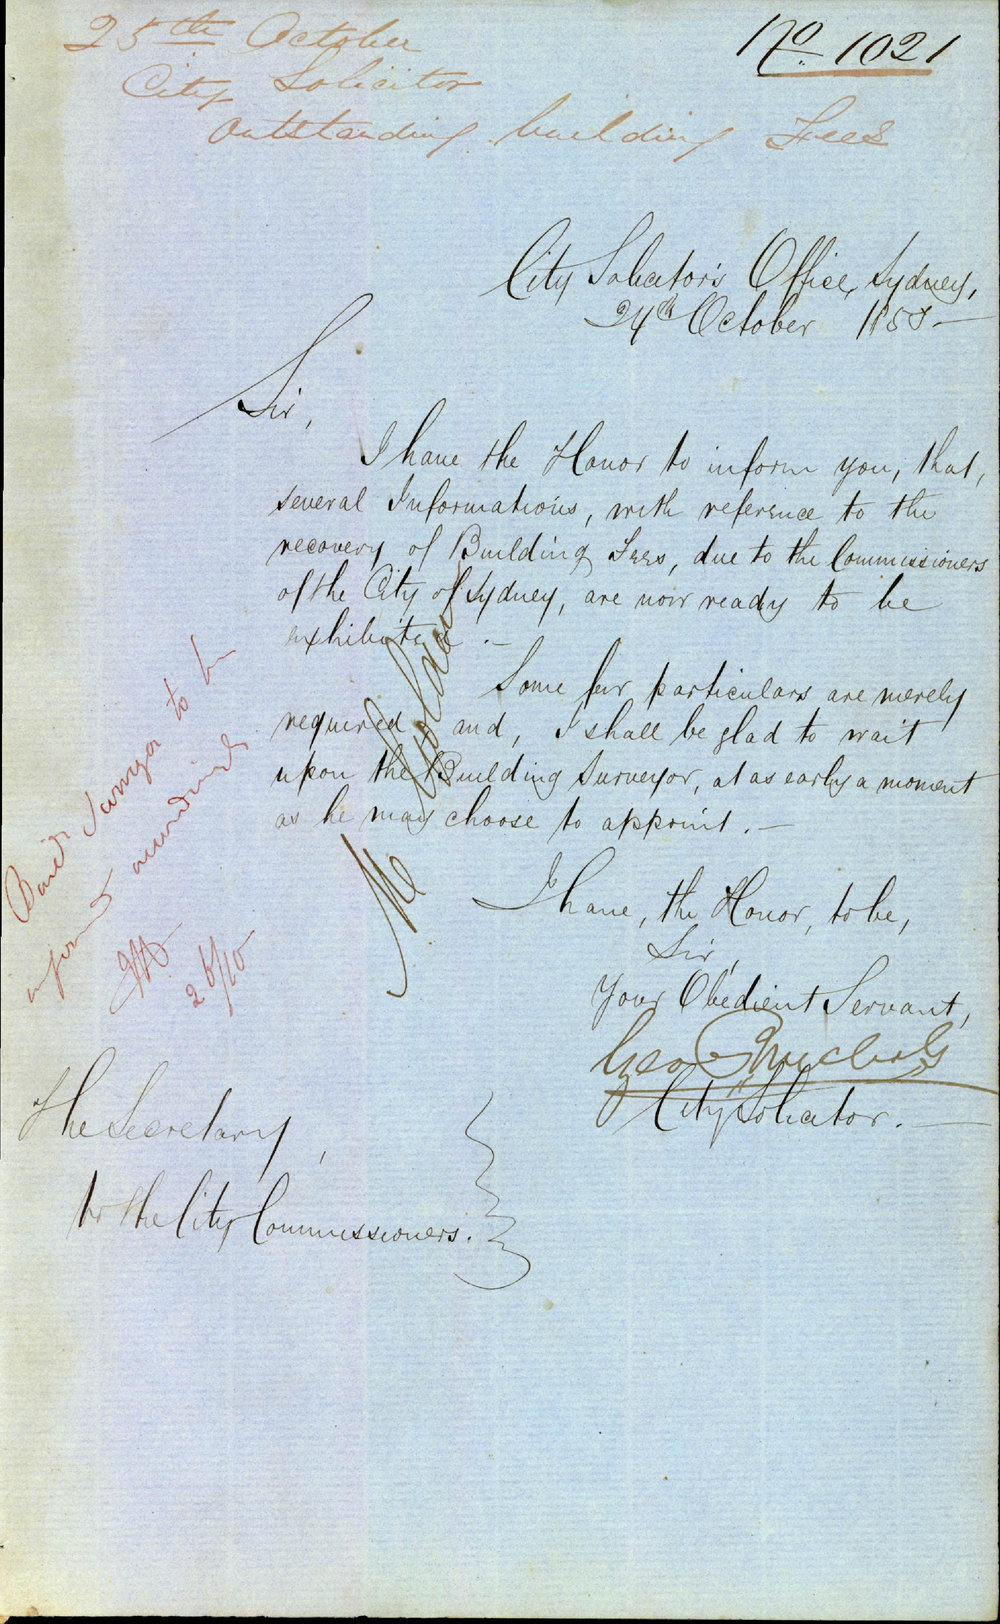 25th October
City Solicitor
Outstanding building Fees
No 1021
City Solicitor's Office, Sydney,
24th October 1855 —
Sir,
I have the Honor to inform you, that,
several Informations, with reference to the
recovery of Building Fees, due to the Commissioners
of the City of Sydney, are now ready to be
exhibited. —
Some few particulars are merely
required and, I shall be glad to wait
upon the Building Surveyor, at as early a moment
as he may choose to appoint. —
I have, the Honor, to be,
Sir,
Your Obedient Servant,
Geo
City Solicitor. —
The Secretary,
to the City Commissioners.
Surveyor to be
informed accordingly
26/10
Mr